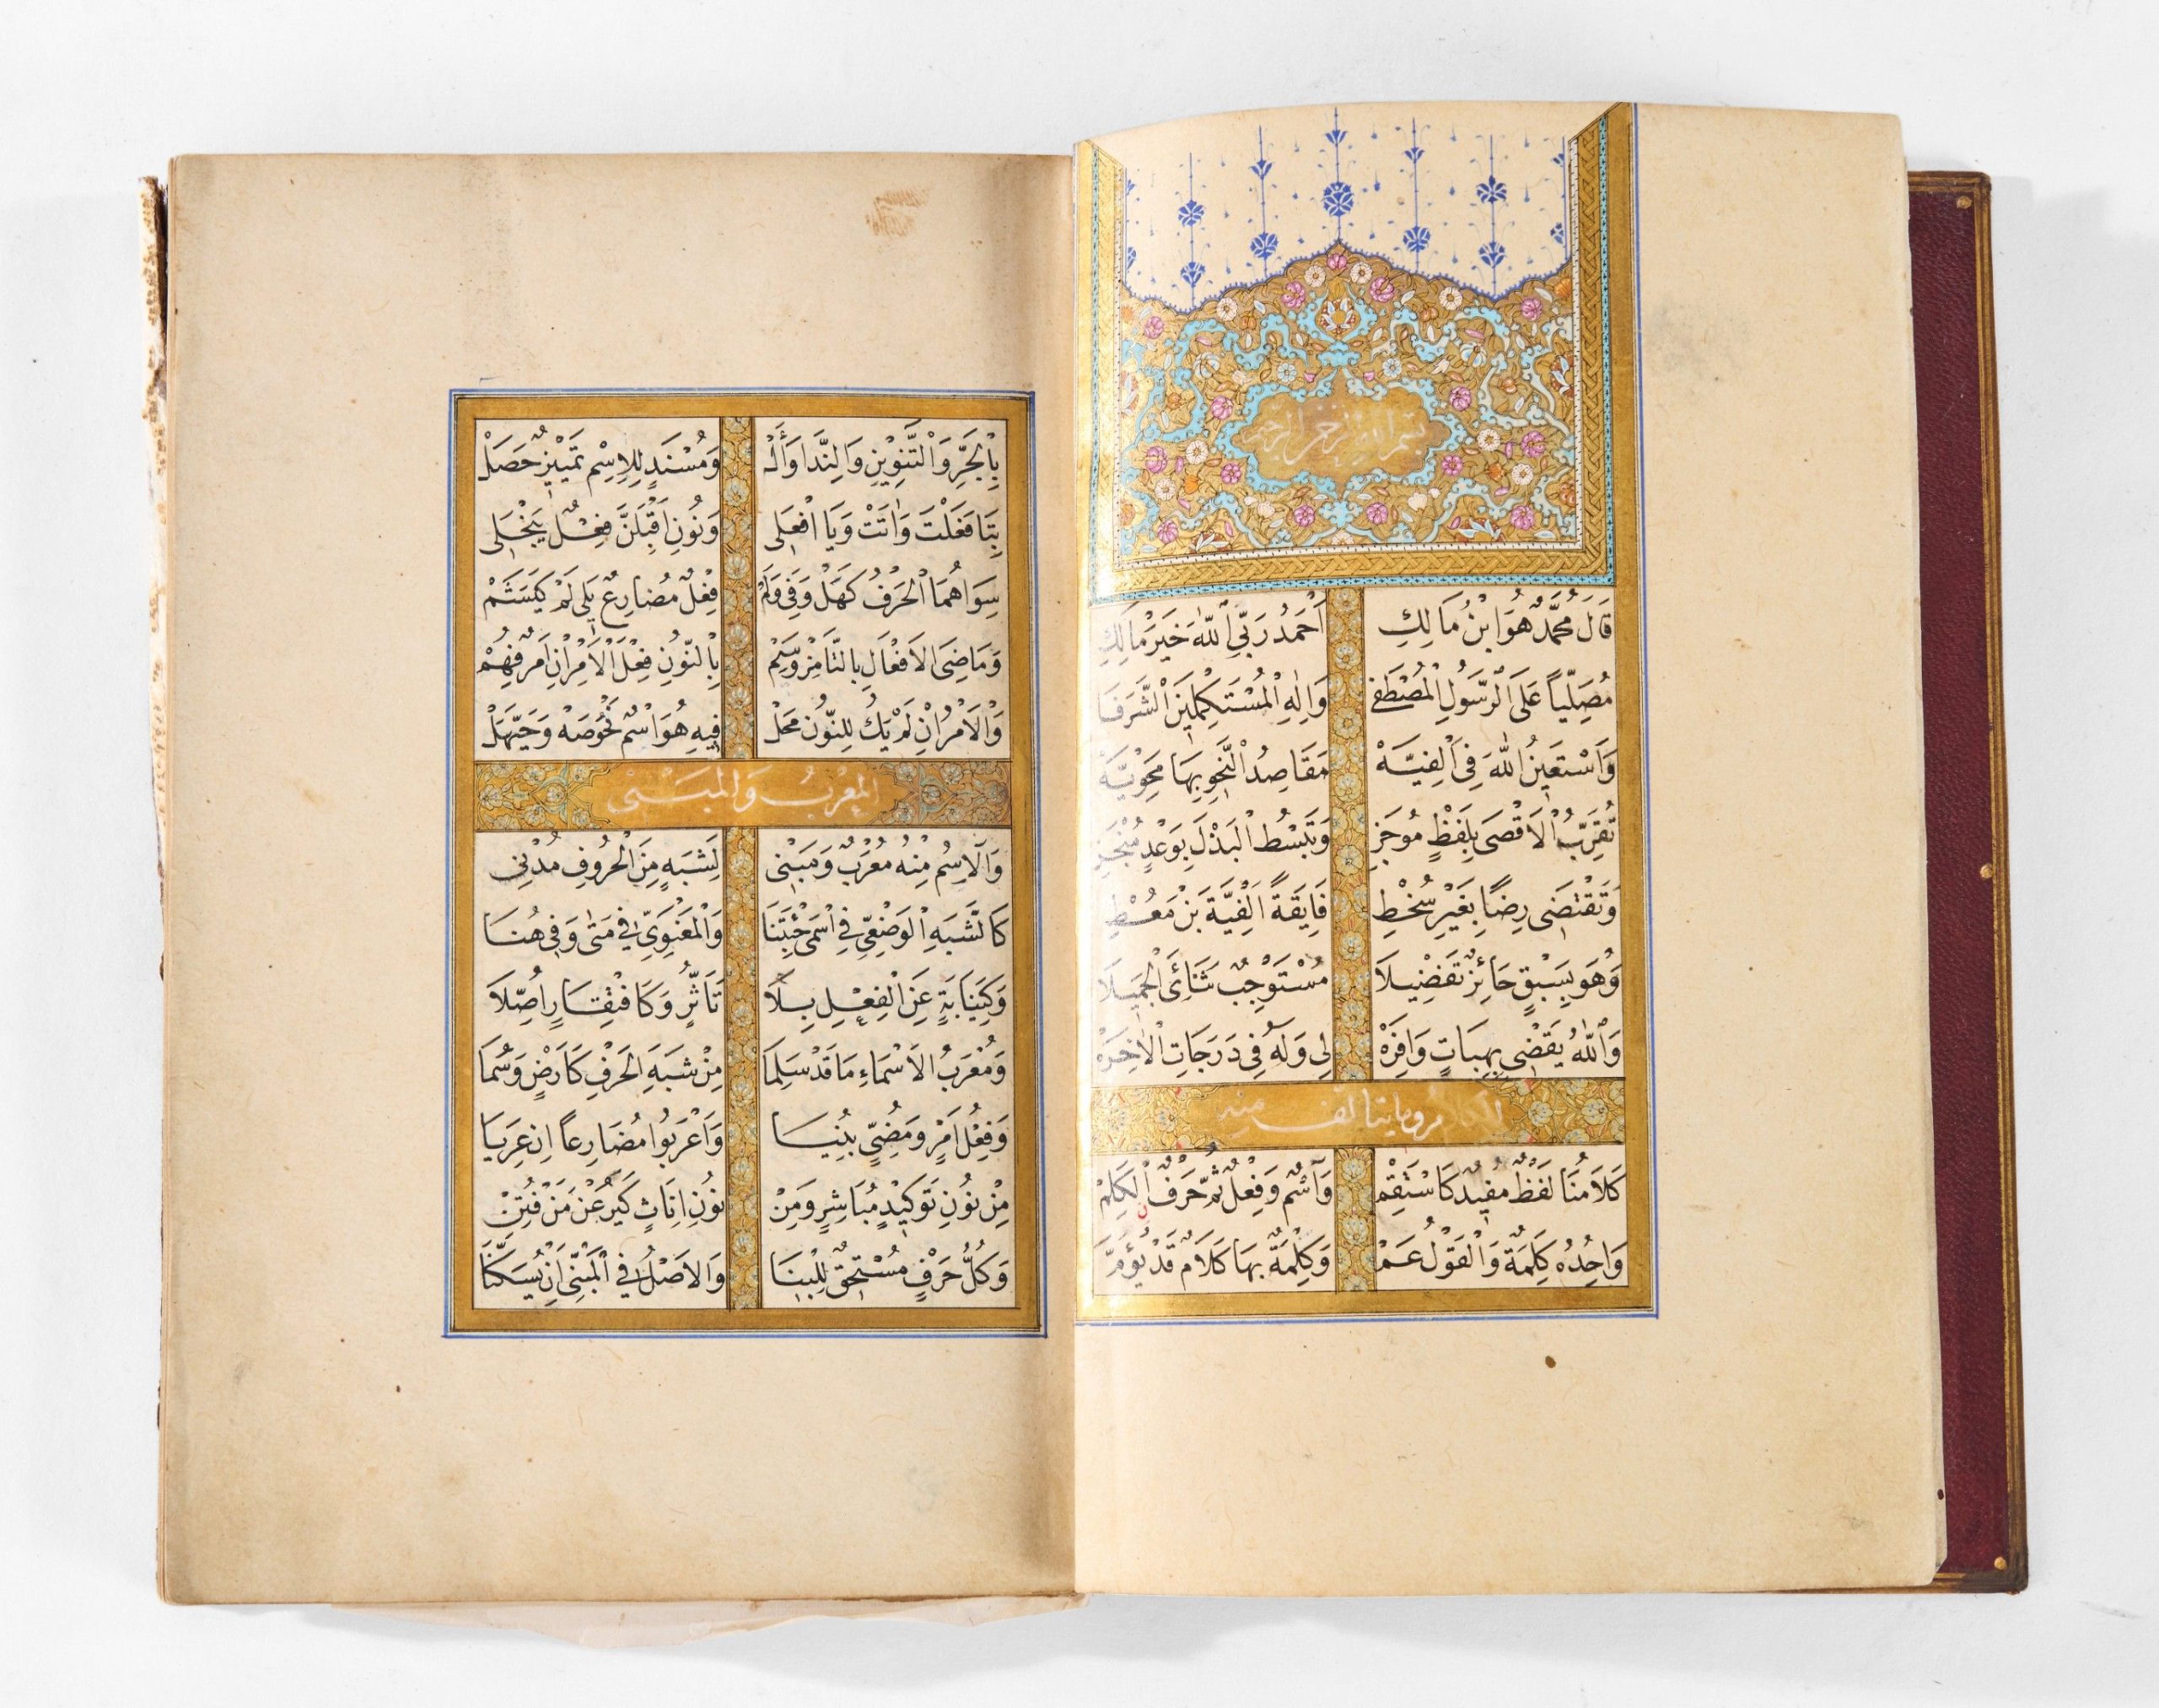 بسم الله الرحمن الرحيم
قَالَ مُحَمَّدٌ هُوَ ابْنُ مَالِكِ أَحْمَدُ رَبِّي اللّٰهَ خَيْرَ مَالِكِ
مُصَلِّيًا عَلَى الرَّسُولِ الْمُصْطَفَى وَاٰلِهِ الْمُسْتَكْمِلِينَ الشَّرَفَا
وَاَسْتَعِينُ اللّٰهَ فِي اَلْفِيَّهْ مَقَاصِدُ النَّحْوِ بِهَا مَحْوِيَّهْ
تُقَرِّبُ الْاَقْصَى بِلَفْظٍ مُوجَزِ وَتَبْسُطُ الْبَذْلَ بِوَعْدٍ مُنْجَزِ
وَتَقْتَضِى رِضًا بِغَيْرِ سُخْطِ فَايِقَةً اَلْفِيَّةَ بْنَ مُعْطِ
وَهُوَ بِسَبْقٍ حَائِزٌ تَفْضِيلَا مُسْتَوْجِبٌ ثَنَائِيَ الْجَمِيلَا
وَاللّٰهُ يَقْضِى بِهِبَاتٍ وَافِرَهْ لِى وَلَهُ فِى دَرَجَاتِ الْاٰخِرَهْ
الكلام وما يتالف منه
كَلَامُنَا لَفْظٌ مُفِيدٌ كَاسْتَقِمْ وَاسْمٌ وَفِعْلٌ ثُمَّ حَرْفٌ الْكَلِمْ
وَاحِدُهُ كَلِمَةٌ وَالْقَوْلُ عَمْ وَكِلْمَةٌ بِهَا كَلَامٌ قَدْ يُؤَمْ
بِالْجَرِّ وَالتَّنْوِينِ وَالنِّدَا وَأَلْ وَمُسْنَدٍ لِلِاسْمِ تَمْيِيزٌ حَصَلْ
بِتَا فَعَلْتَ وَاَتَتْ وَيَا افْعَلِى وَنُونِ اَقْبِلَنَّ فِعْلٌ يَنْجَلِى
سِوَاهُمَا الْحَرْفُ كَهَلْ وَفِى وَلَمْ فِعْلٌ مُضَارِعٌ يَلِى لَمْ كَيَشَمْ
وَمَاضِىَ الْاَفْعَالِ بِالتَّا مِزْ وَسِمْ بِالنُّونِ فِعْلَ الْاَمْرِ اِنْ اَمْرٌ فُهِمْ
وَالْاَمْرُ اِنْ لَمْ يَكُ لِلنُّونِ مَحَلْ فِيهِ هُوَ اسْمٌ نَحْوُ صَهْ وَحَيَّهَلْ
المعْرَبُ وَالمَبْنِى
وَالِاسْمُ مِنْهُ مُعْرَبٌ وَمَبْنِى لِشَبَهٍ مِنَ الْحُرُوفِ مُدْنِى
كَالشَّبَهِ الْوَضْعِىِّ فِى اسْمَىْ جِئْتَنَا وَالْمَعْنَوِىِّ فِى مَتَى وَفِى هُنَا
وَكَنِيَابَةٍ عَنِ الْفِعْلِ بِلَا تَاَثُّرٍ وَكَافْتِقَارٍ اُصِّلَا
وَمُعْرَبُ الْاَسْمَاءِ مَا قَدْ سَلِمَا مِنْ شَبَهِ الْحَرْفِ كَاَرْضٍ وَسُمَا
وَفِعْلُ اَمْرٍ وَمُضِىٍّ بُنِيَا وَاَعْرَبُوا مُضَارِعًا اِنْ عَرِيَا
مِنْ نُونِ تَوْكِيدٍ مُبَاشِرٍ وَمِنْ نُونِ اِنَاثٍ كَيَرُعْنَ مَنْ فُتِنْ
وَكُلُّ حَرْفٍ مُسْتَحِقٌّ لِلْبِنَا وَالْاَصْلُ فِى الْمَبْنِىِّ اَنْ يُسَكَّنَا